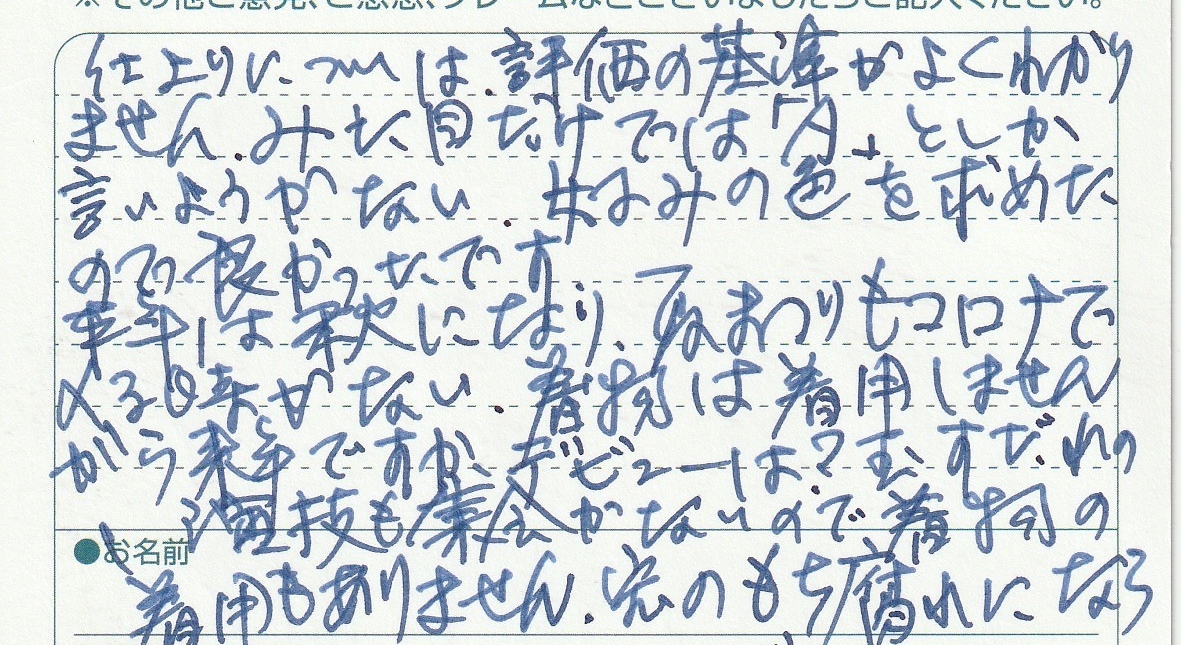 ※その他ご意見、ご感想、クレームなどございましたらご記入ください。
仕上りに は、評価の基準がよくわかり
ません。みた目だけでは としか
言いようがない。好みの色を求めた
ので良かったです
来年は秋になり、 まつりもコロナで
出来がない。着物は着用しません
から来年ですか、デビューは?玉すだれの
演技も集会がないので着物の
●お名前
着用もありません。宝のもち腐れになら